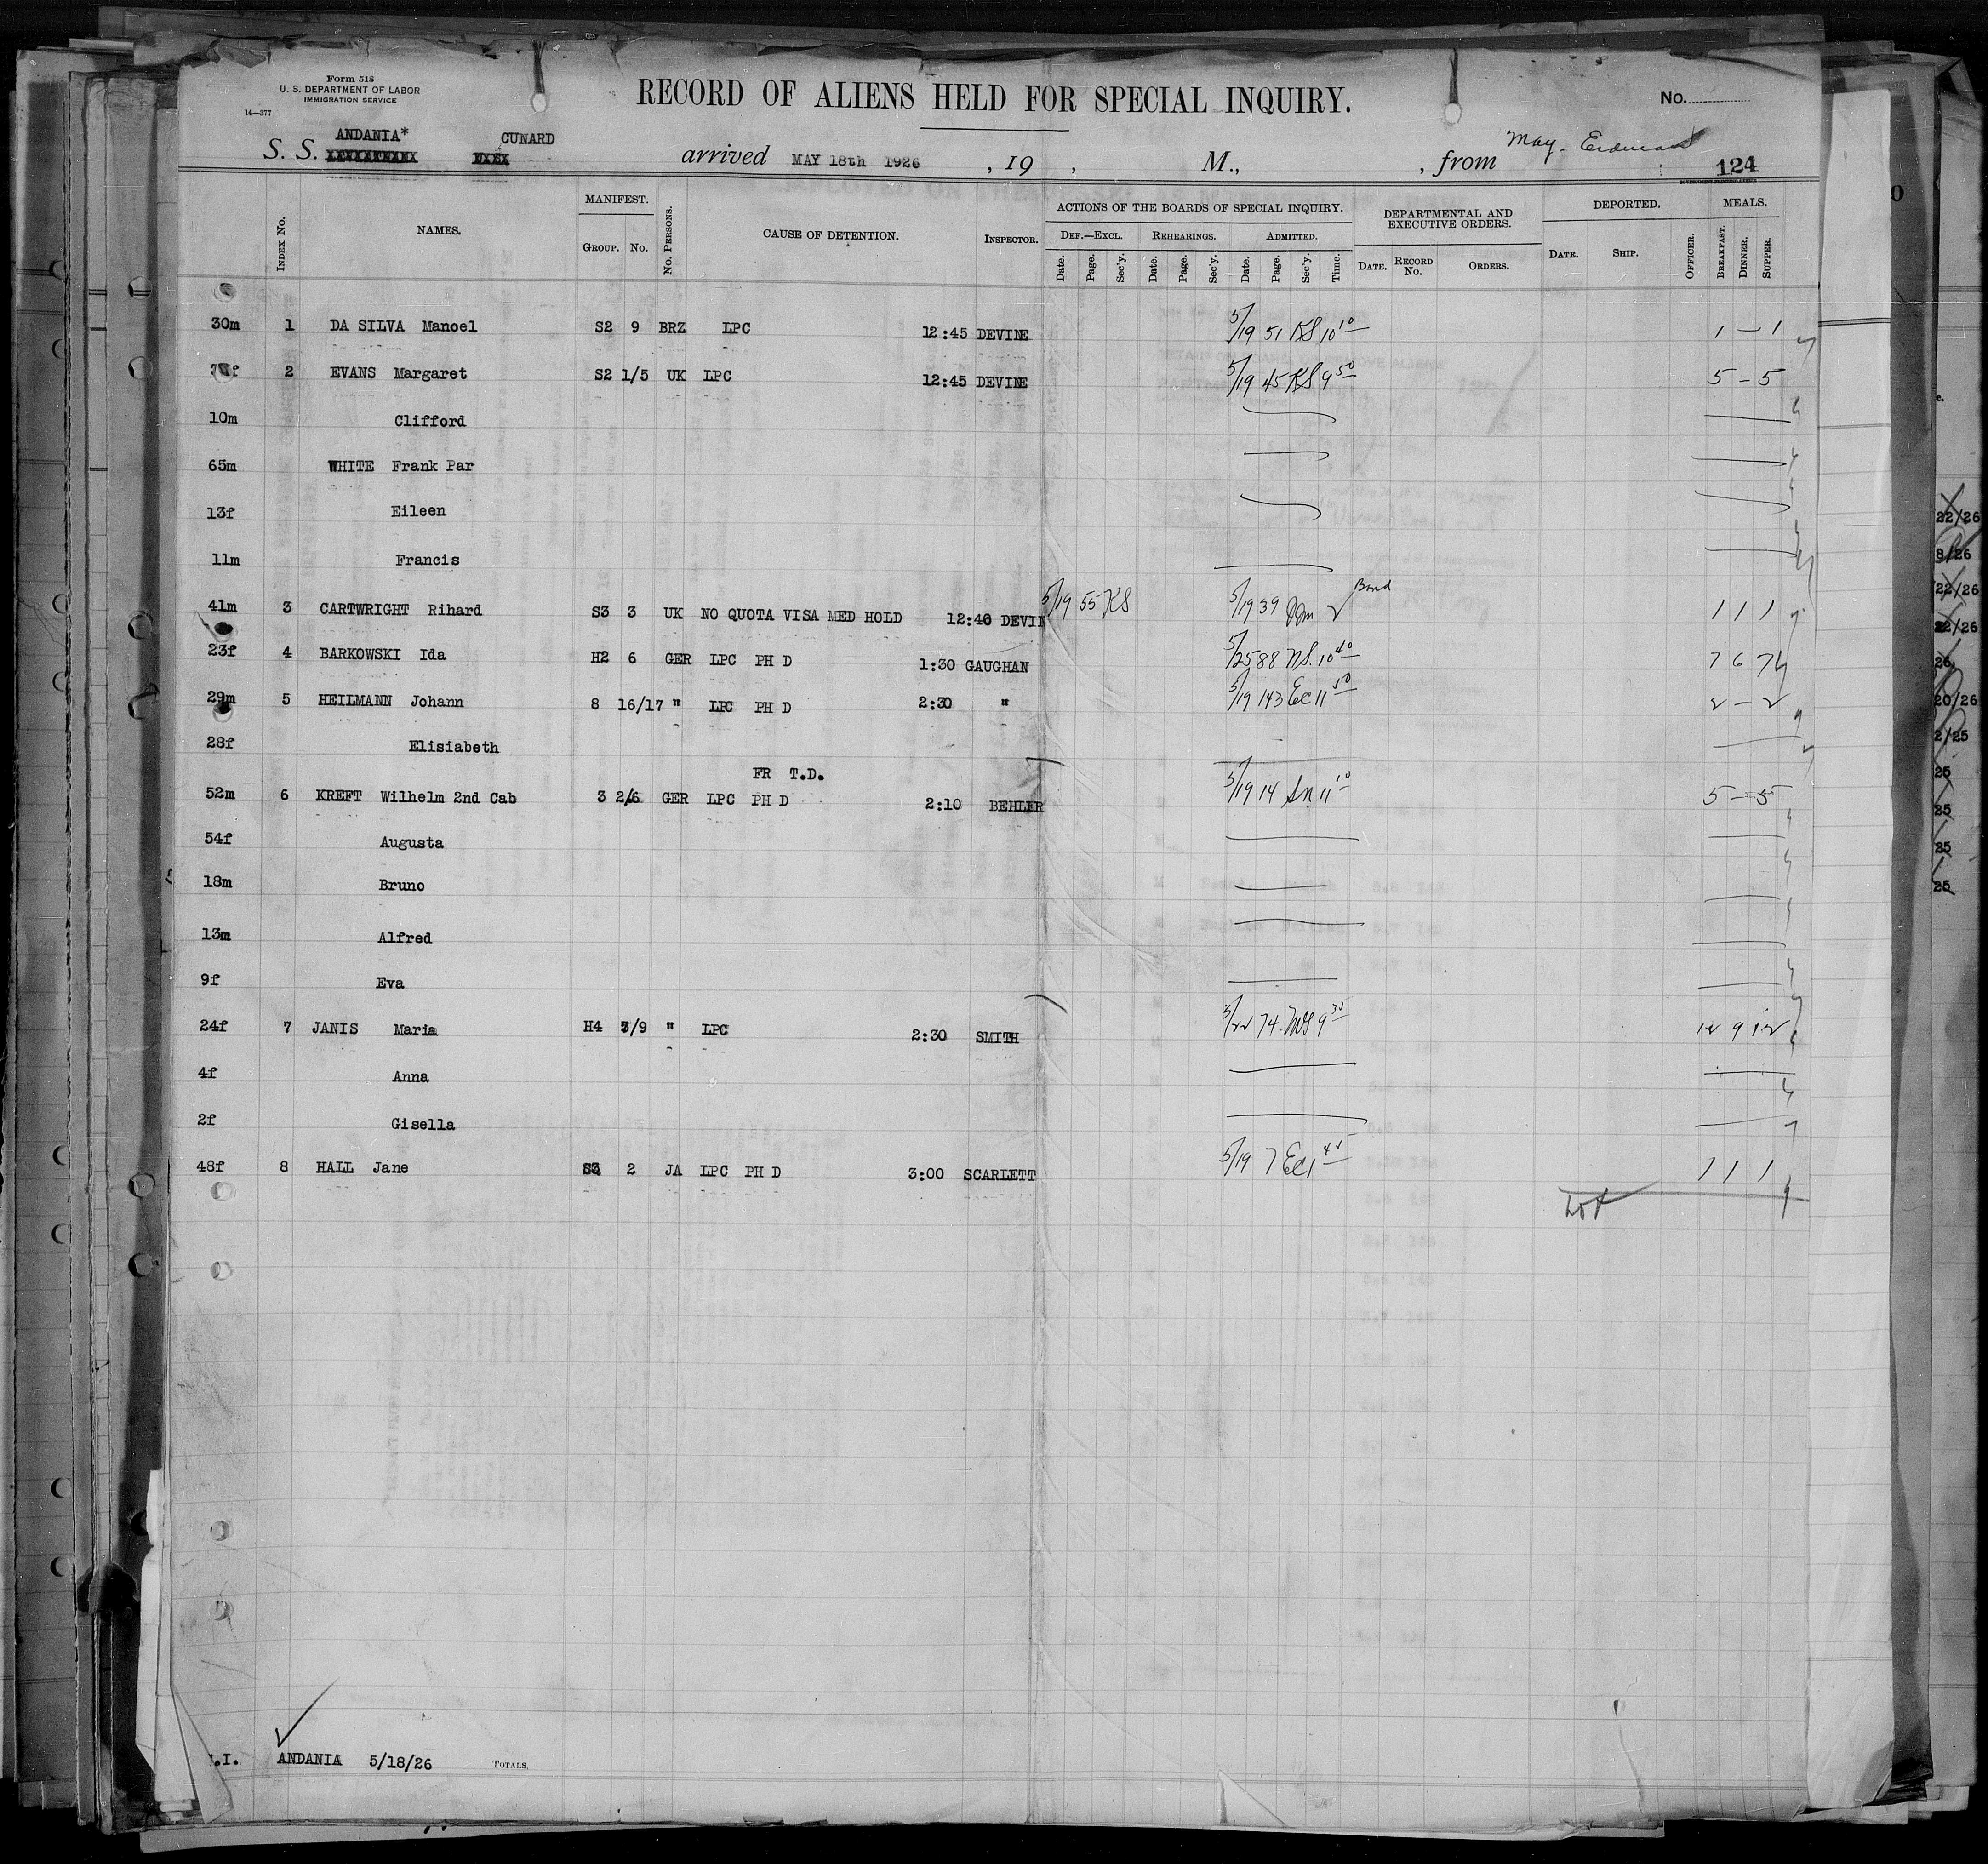 Form 518
U. S. DEPARTMENT OF LABOR
IMMIGRATION SERVICE
14—377
RECORD OF ALIENS HELD FOR SPECIAL INQUIRY.
No.
ANDANIA* CUNARD
S. S. arrived MAY 18th 1926, 19 , M., , from May.
124
INDEX No. NAMES. MANIFEST. GROUP. No. No. PERSONS. CAUSE OF DETENTION. INSPECTOR. ACTIONS OF THE BOARDS OF SPECIAL INQUIRY. DEPARTMENTAL AND EXECUTIVE ORDERS. DEPORTED. MEALS.
DEF.—EXCL. REHEARINGS. ADMITTED.
Date. Page. Sec'y. Date. Page. Sec'y. Date. Page. Sec'y. Time. DATE. RECORD No. ORDERS. DATE. SHIP. OFFICER. BREAKFAST. DINNER. SUPPER.
30m 1 DA SILVA Manoel S2 9 BRZ LPC 12:45 DEVINE 5/19 51 KS 10 10 1 — 1
2 EVANS Margaret S2 1/5 UK LPC 12:45 DEVINE 5/19 45 KS 9 50 5 — 5
10m Clifford
65m WHITE Frank Par
13f Eileen
11m Francis
41m 3 CARTWRIGHT Rihard S3 3 UK NO QUOTA VISA MED HOLD 12:40 DEVIN 5/19 55 KS 5/19 39 Bond 1 1 1
23f 4 BARKOWSKI Ida H2 6 GER LPC PH D 1:30 GAUGHAN 5/25 88 NS. 10 40 7 6 7
29m 5 HEILMANN Johann 8 16/17 " LPC PH D 2:30 " 5/19 143 EC 11 50 2 — 2
28f Elisiabeth
FR T.D.
52m 6 KREFT Wilhelm 2nd Cab 3 2/6 GER LPC PH D 2:10 BEHLER 5/19 14 SN 11 10 5 — 5
54f Augusta
18m Bruno
13m Alfred
9f Eva
24f 7 JANIS Maria H4 7/9 " LPC 2:30 SMITH 5/22 74 9 30 12 9 12
4f Anna
2f Gisella
48f 8 HALL Jane S3 2 JA LPC PH D 3:00 SCARLETT 5/19 7 EC 1 45 1 1 1
.I. ANDANIA 5/18/26 TOTALS,
22/26
8/26
22/26
22/26
26
20/26
2/25
25
25
25
25